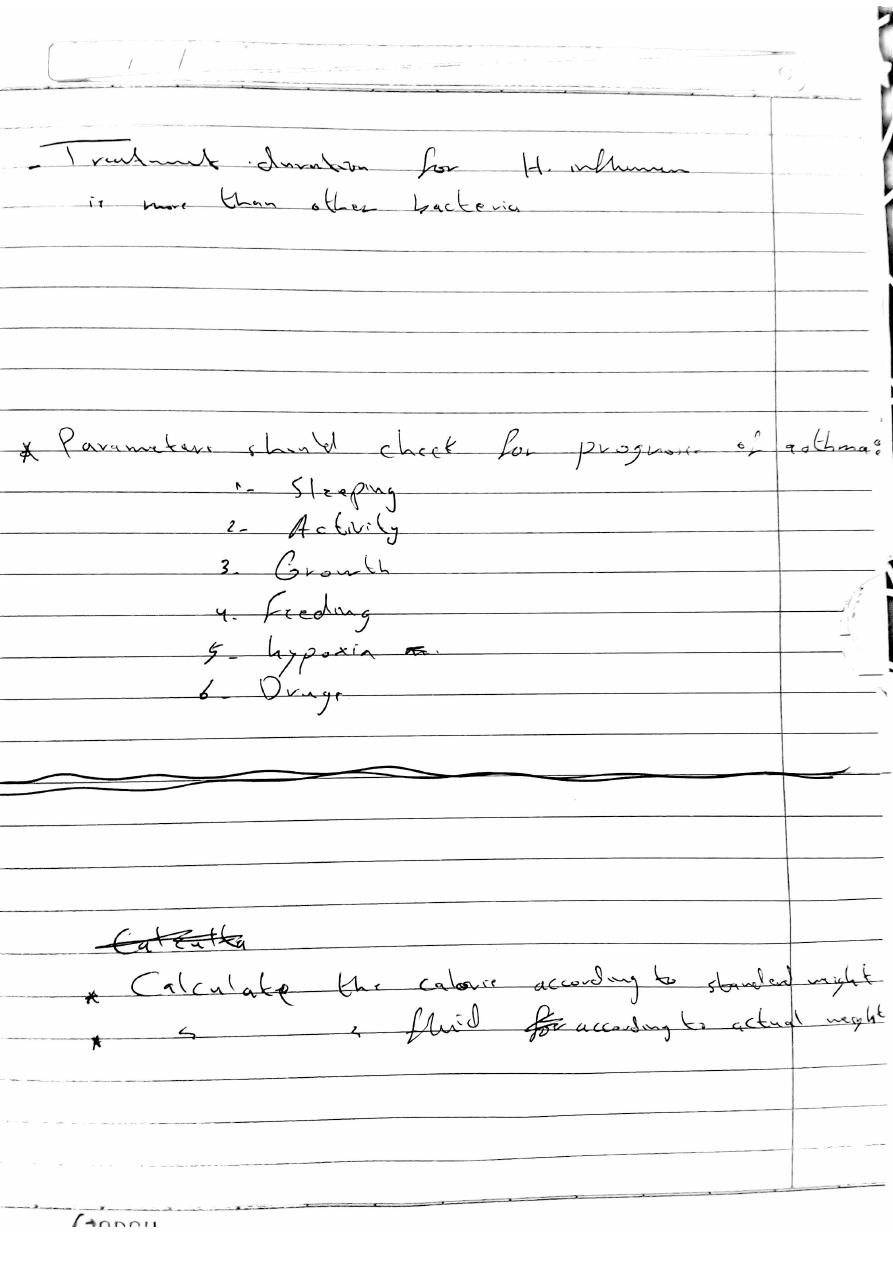 - Treatment duration for H. influenza
is more than other bacteria
* Parameters should check for prognosis of asthma:
1- Sleeping
2- Activity
3- Growth
4. Feeding
5- hypoxia
6- Drugs
* Calculate the calorie according to standard weight
* " " fluid for according to actual weight